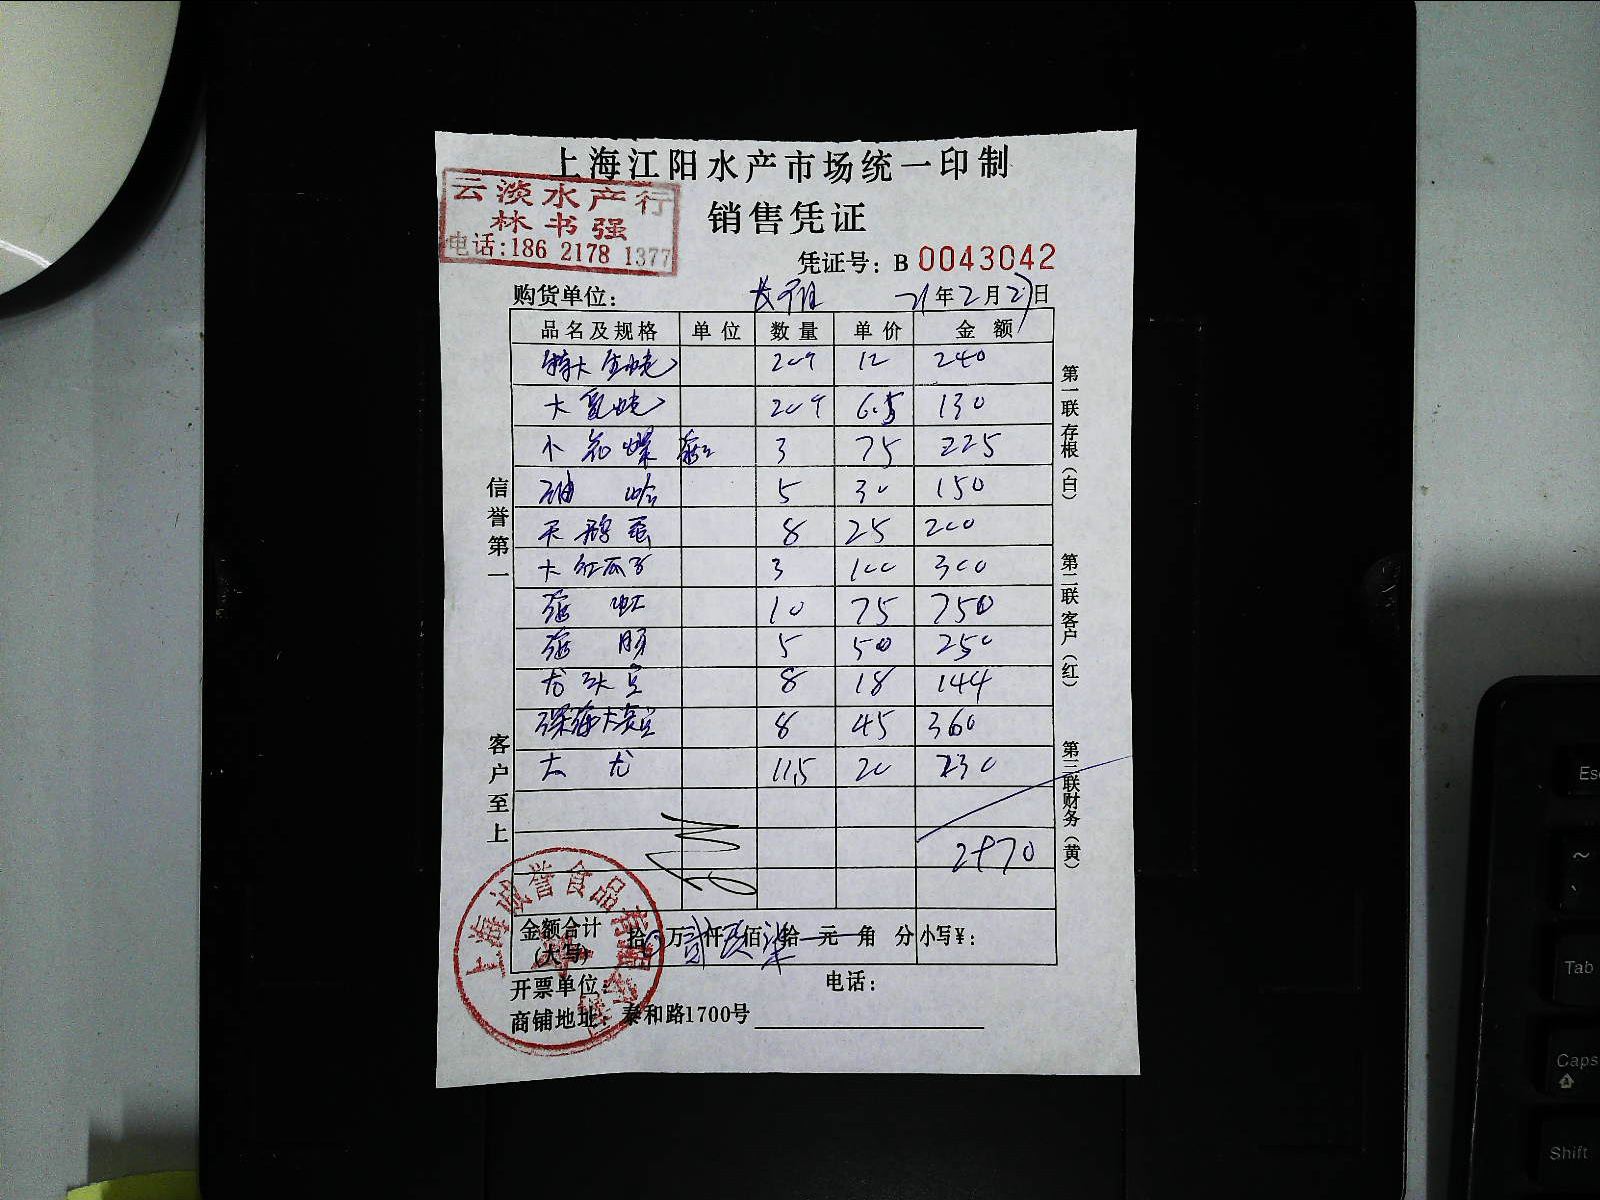 上海江阳水产市场统一印制
云淡水产行
林书强
电话:186 2178 1377
销售凭证
凭证号: B 0043042
购货单位:
21年2月27日
品名及规格 单位 数量 单价 金额
特大生蚝 20个 12 240
大 蚝 20个 6.5 130
小花螺 3 75 225
油蛤 5 30 150
天鹅蛋 8 25 200
大红瓜子 3 100 300
海虹 10 75 750
海肠 5 50 250
龙头 8 18 144
深海大 8 45 360
大龙 11.5 20 230
2970
金额合计(大写) 拾 万贰仟 佰柒拾元角分 小写¥:
开票单位:
电话:
商铺地址: 泰和路1700号
信誉第一
客户至上
第一联存根(白)
第二联客户(红)
第三联财务(黄)
上海诚誉食品有限
Esc
~
Tab
Caps
Shift